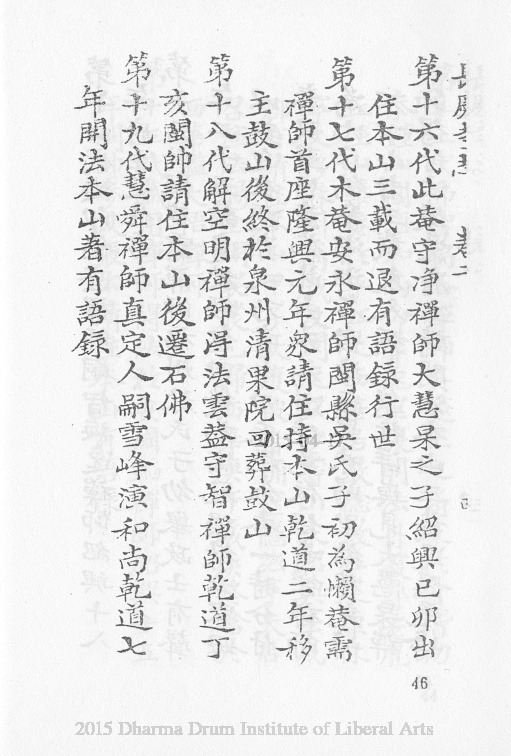 長慶寺志　卷二　四
第十六代此菴守净禪師大慧杲之子紹興已卯出
住本山三載而退有語録行世
第十七代木菴安永禪師閩縣吳氏子初為懶菴需
禪師首座隆興元年衆請住持本山乾道二年移
主鼓山後終於泉州清果院回葬鼓山
第十八代解空明禪師淂法雲葢守智禪師乾道丁
亥閩帥請住本山後遷石佛
第十九代慧舜禪師真定人嗣雪峰演和尚乾道七
年開法本山著有語録
46
2015 Dharma Drum Institute of Liberal Arts